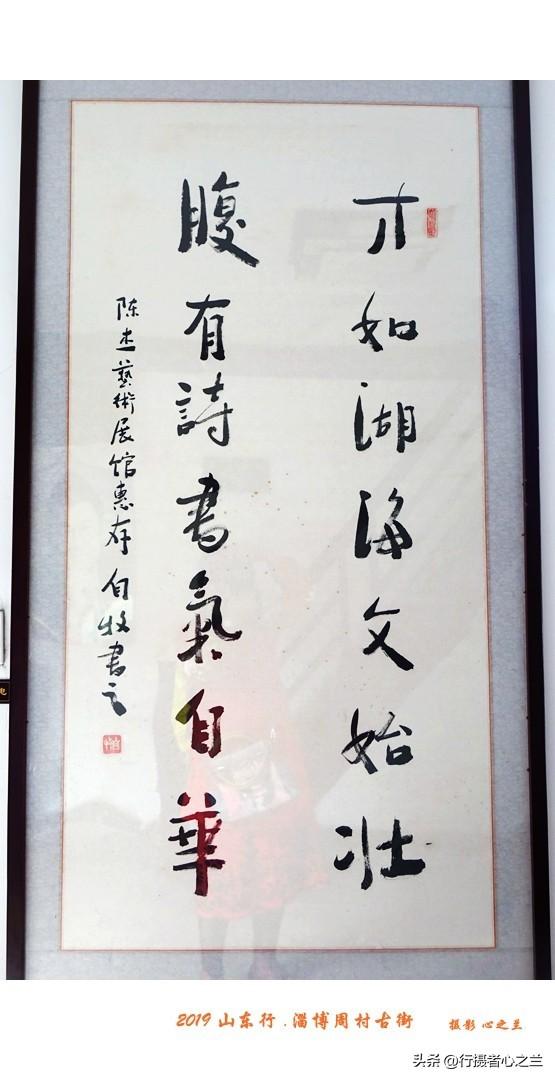 才如湖海文始壮
腹有詩書氣自華
陈杰藝術展馆惠存 自牧書之
2019 山东行 . 淄博周村古街
摄影 心之兰
头条 @行摄者心之兰